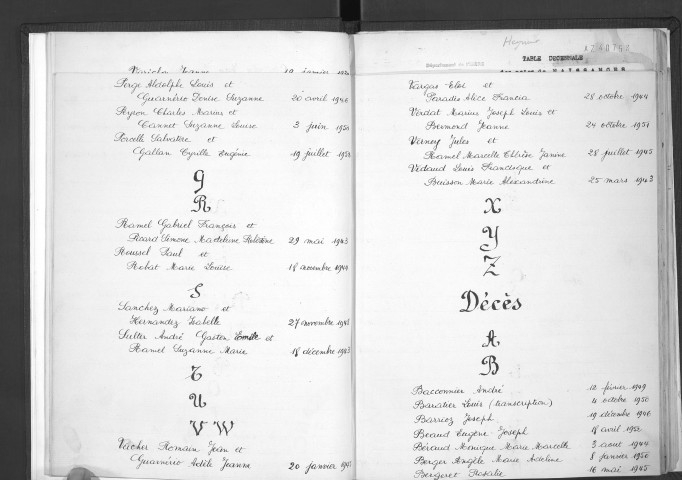 Perge Adolphe Louis et
Guarnério Denise Suzanne 20 avril 1946
Peyron Charles Marius et
Cannet Suzanne Louise 3 juin 1950
Porcelle Salvatère et
Gallan Cyrille Eugénie 19 juillet 1951
Q
R
Ramel Gabriel François et
Picard Simone Madeleine 29 mai 1943
Roussel Paul et
Robat Marie Louise 18 novembre 1944
S
Sanchez Mariano et
Hernandez Isabelle 27 novembre 1948
Sulter André Gaston Emile et
Ramel Suzanne Marie 18 décembre 1943
T
U
V W
Vacher Romain Jean et
Guarnério Adèle Jeanne 20 janvier
Heyrieux
TABLE DECENNALE
Département de l'ISERE
Vargas Eloi et
Paradis Alice Francia 28 octobre 1944
Verdat Marius Joseph Louis et
Breymond Jeanne 24 octobre 1951
Verney Jules et
Ramel Marcelle Janine 28 juillet 1945
Vedaud Louis Francisque et
Buisson Marie Alexandrine 25 mars 1943
X
Y
Z
Décès
A
B
Bacconnier André 12 février 1949
Baratier Louis (transcription) 4 octobre 1950
Barrioz Joseph 19 décembre 1946
Beaud Eugène Joseph 18 avril 1952
Béraud Monique Marie Marcelle 3 août 1944
Berger Angèle Marie Adeline 8 janvier 1950
Bergeret Rosalie 16 mai 1945